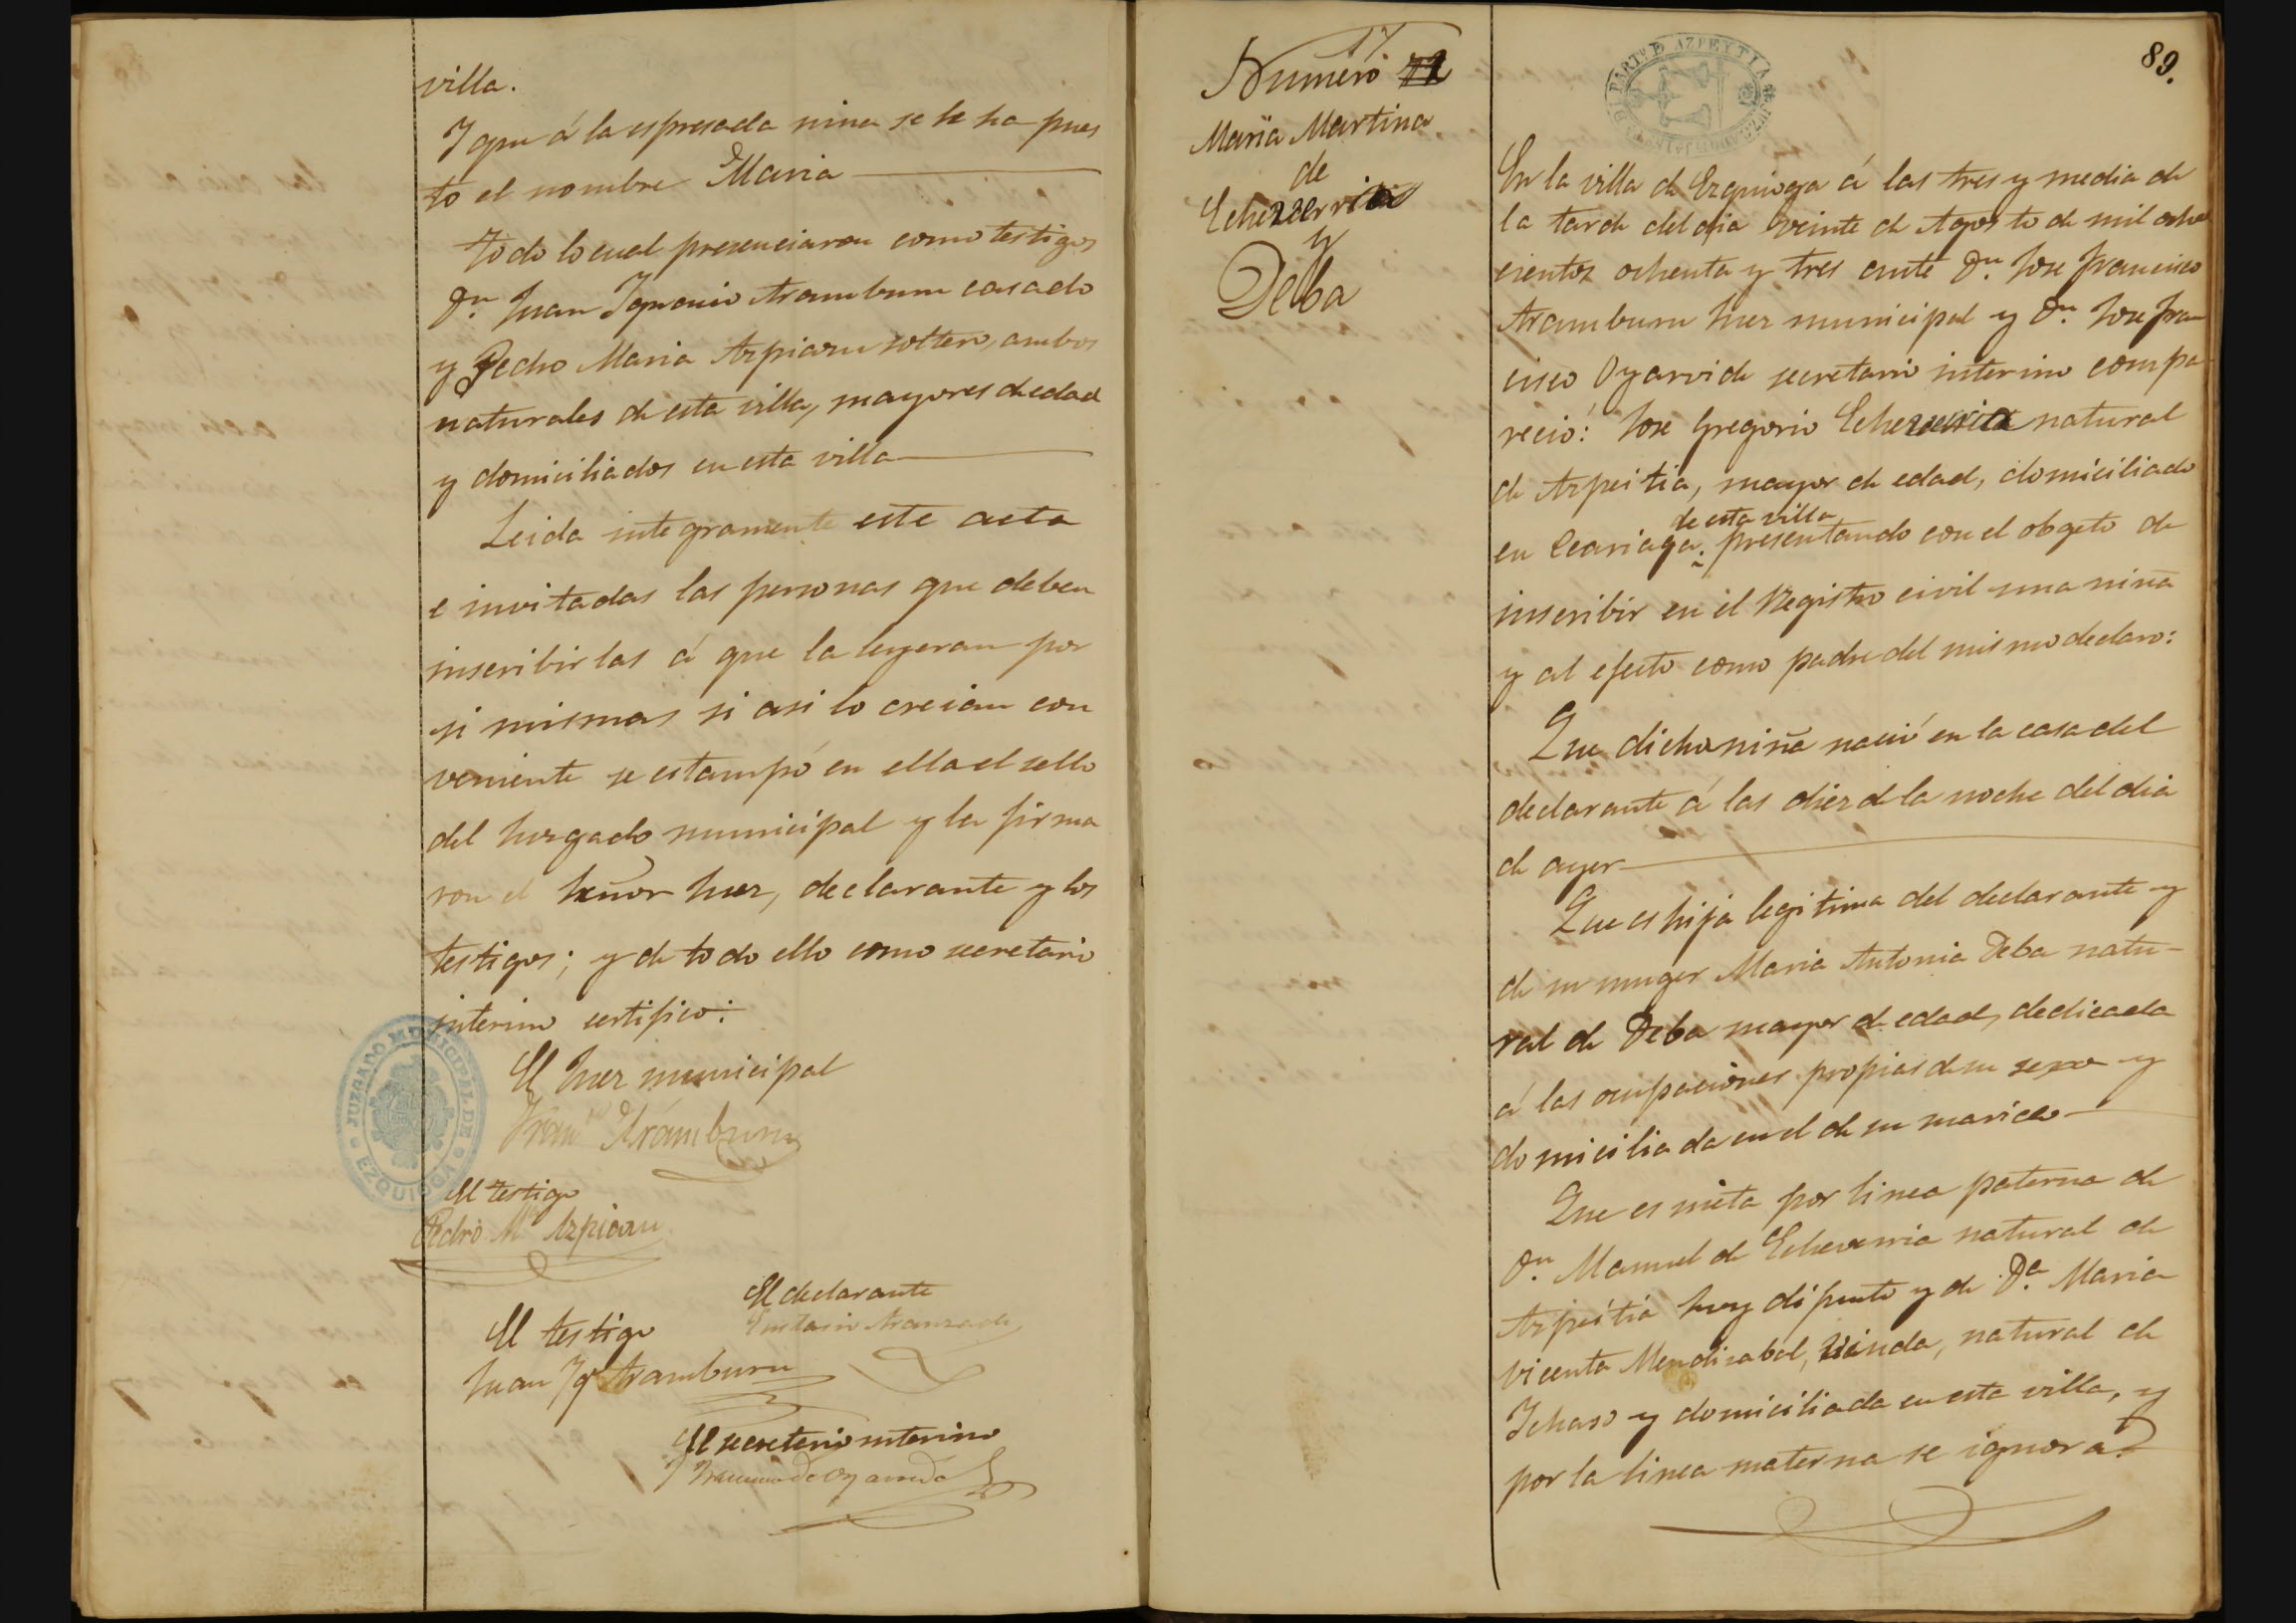 villa.
Y que á la espresada nina se le ha pues
to el nombre Maria
Todo lo cual presenciaron como testigos
Dn. Juan Ignacio Aramburu casado
y Pedro Maria Azpiazu soltero, ambos
naturales de esta villa, mayores de edad
y domiciliados en esta villa
Leida integramente este acta
e invitadas las personas que deben
inscribirlas á que la leyeran por
si mismas si asi lo creian con
veniente se estampó en ella el sello
del Juzgado municipal y la firma
ron el Señor Juez, declarante y los
testigos; y de todo ello como secretario
interino certifico:
El Juez municipal
Franco Aramburu
JUZGADO MUNICIPAL DE EZQUIOGA
El testigo
Pedro Ma Azpiazu
El declarante
El testigo
Juan Igo Aramburu
El secretario interino
17.
Numero 72
Maria Martina
de
Echeverria
y
Deba
89.
En la villa de Ezquioga á las tres y media de
la tarde del dia veinte de Agosto de mil ocho
cientos ochenta y tres ante Dn. Jose Francisco
Aramburu Juez municipal y Dn. Jose Fran
cisco Oyarvide secretario interino compa
reció: Jose Gregorio Echeverria natural
de Azpeitia, mayor de edad, domiciliado
de esta villa
en Leariaga. presentando con el obgeto de
inscribir en el Registro civil una niña
y al efecto como padre del mismo declaro:
Que dicha niña nació en la casa del
declarante á las diez de la noche del dia
de ayer
Que es hija legitima del declarante y
de su muger Maria Antonia Deba natu-
ral de Deba mayor de edad, dedicada
á las ocupaciones propias de su sexo y
domiciliada en el de su marido
Que es nieta por linea paterna de
Dn. Manuel de Echeverria natural de
Azpeitia hoy difunto y de Da. Maria
Vicenta Mendizabal, viuda, natural de
Ichaso y domiciliada en esta villa, y
por la linea materna se ignora.